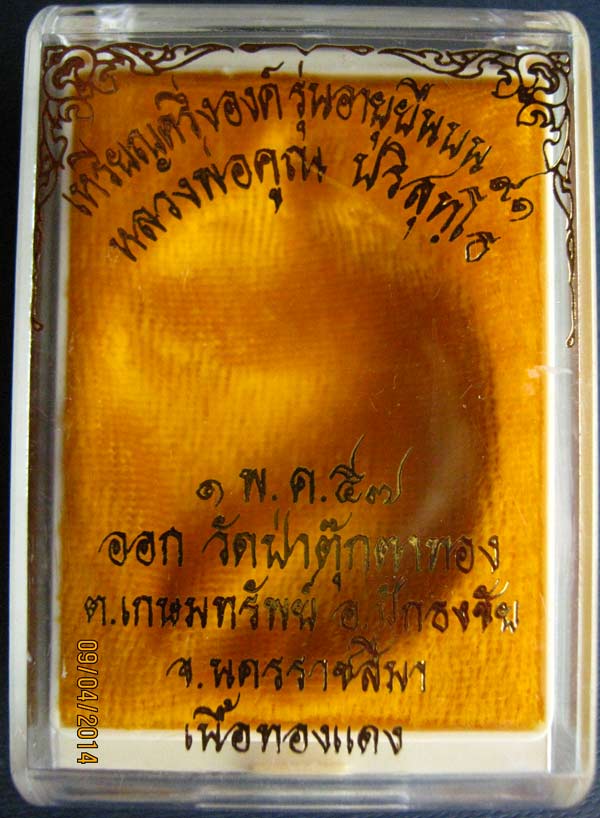 เหรียญครึ่งองค์ รุ่นอายุยืนบน ๙๑
หลวงพ่อคูณ ปริสุทฺโธ
๑ พ.ค.๕๗
ออก วัดป่าตุ๊กตาทอง
ต.เกษมทรัพย์ อ.ปักธงชัย
จ.นครราชสีมา
เนื้อทองแดง
09/04/2014